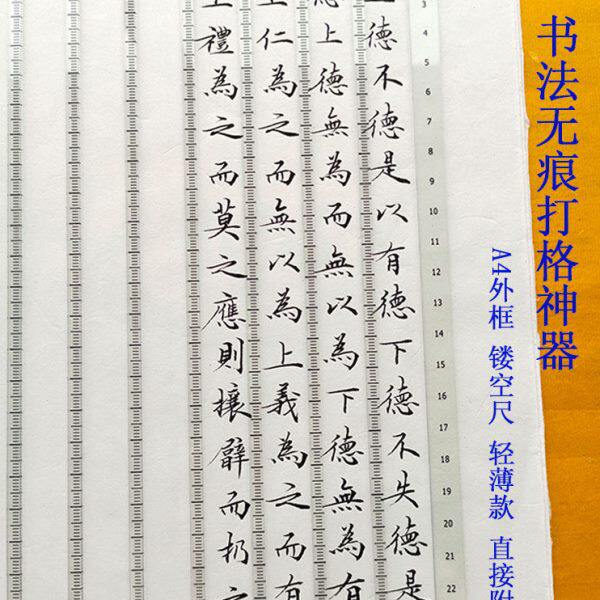 书法无痕打格神器
A4外框 镂空尺 轻薄款 直接附
3
4
5
6
7
8
9
10
11
12
13
14
15
16
17
18
19
20
21
22
上德不德是以有德下德不失德是
德上德無為而無以為下德無為有
上仁為之而無以為上義為之而有
上禮為之而莫之應則攘臂而扔之